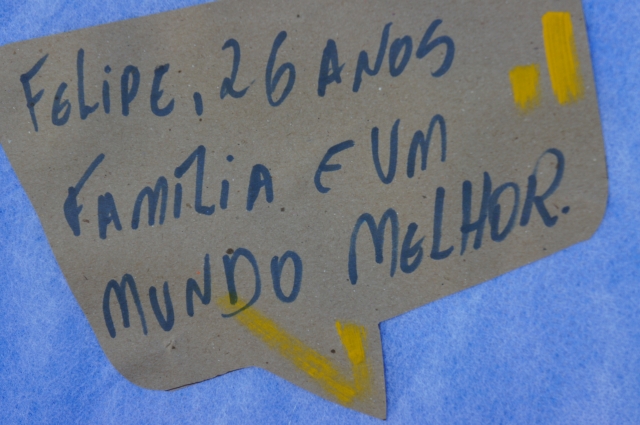 FELIPE, 26 ANOS
FAMÍLIA E UM
MUNDO MELHOR.